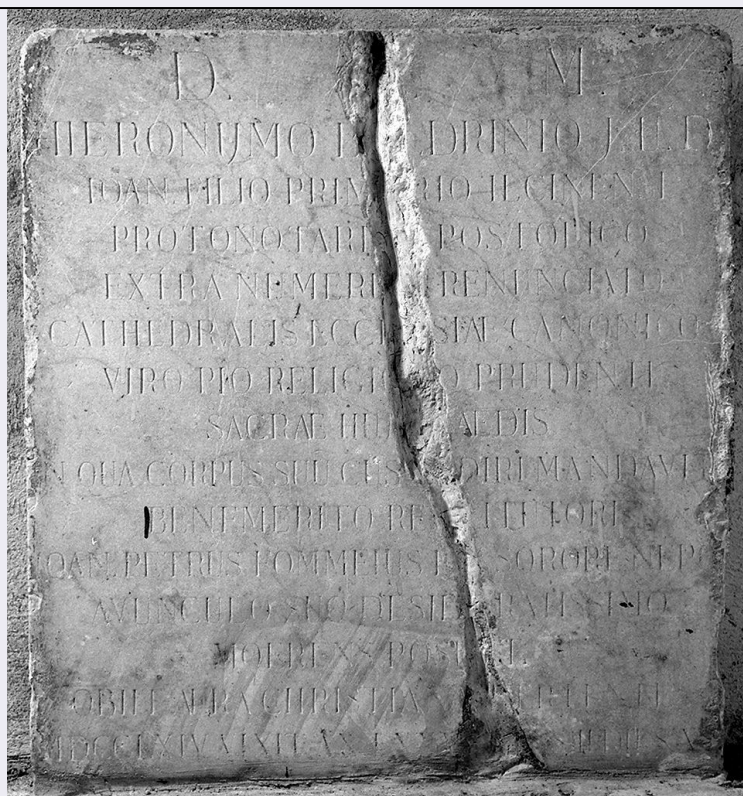 D. M.
HIERONIJMO DRINIO J.U.D
IOAN. FILIO PRIM RIO ILCINENSI
PROTONOTARI POSTOLICO
EXTRA NUMER RENUNCIATO
CATHEDRALIS ECCL SIAE CANONICO
VIRO PIO RELIGI O PRUDENTI
SACRAE HU AEDIS
N QUA CORPUS SUU CUS DIRI MANDAVI
BENEMERITO RE TITUTORI
OAN. PETRUS POMMEIUS SORORE NEPO
AVUNCULO SUO DESI RATISSIMO
MOERENS POS
OBIIT AERA CHRISTIA
MDCCLXIV VIXIT AN